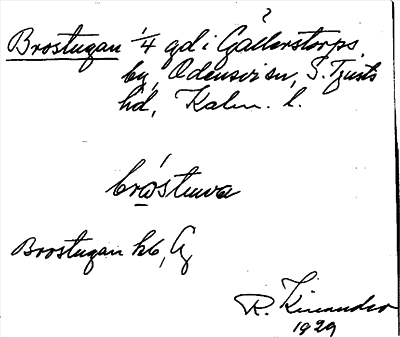 ?
Brostugan 1/4 gd i Gällerstorps
by, Odensvi sn, S. Tjusts
hd, Kalm. l.
bro̱stuwa
Brostugan hb, G
R. Kinander
1929